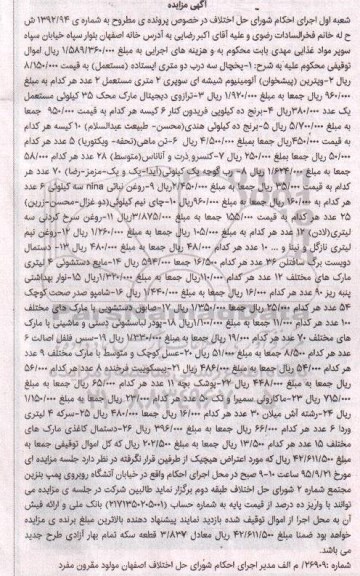 آگهی مزایده
شعبه اول اجرای احکام شورای حل اختلاف در خصوص پرونده ی مطروح به شماره ی ۱۳۹۲/۹۴ ش
ح له خانم فخرالسادات رضوی و علیه آقای اکبر رضایی به آدرس خانه اصفهان بلوار سپاه خیابان سپاه
سوپر مواد غذایی مهدی بابت محکوم به و هزینه های اجرایی به مبلغ ۱/۵۸۹/۳۶۰ ریال اموال
توقیفی محکوم علیه به شرح: ۱-یخچال سه درب دو متری ایستاده (مستعمل) به قیمت ۸/۱۵۰/۰۰۰
ریال ۲-ویترین (پیشخوان) آلومینیوم شیشه ای سوپری ۲ متری مستعمل ۲ عدد هر کدام به مبلغ
۹۶۰/۰۰۰ ریال جمعا به مبلغ ۱/۹۲۰/۰۰۰ ریال ۳-ترازوی دیجیتال مارک محک ۳۵ کیلوئی مستعمل
یک عدد ۳۸۰/۰۰۰ ریال ۴-برنج ده کیلویی فریدون کنار ۶ کیسه هر کدام به قیمت ۹۵۰/۰۰۰ جمعا
به مبلغ ۵/۷۰۰/۰۰۰ ریال ۵-برنج ده کیلوئی هندی (محسن- طبیعت عبدالسلام) ۱۰ کیسه هر کدام به
قیمت ۴۵۰/۰۰۰ ریال جمعا به مبلغ ۴/۵۰۰/۰۰۰ ریال ۶-تن ماهی (تحفه- ویکتوریا) ۵ عدد هر کدام
به مبلغ ۵۰/۰۰۰ ریال جمعا بمبلغ ۲۵۰/۰۰۰ ریال ۷-کنسرو ذرت و آناناس (متوسط) ۲۸ عدد هر کدام ۵۸/۰۰۰
ریال جمعا به مبلغ ۱/۶۲۴/۰۰۰ ریال ۸-رب گوجه یک کیلوئی (آیدا-یک و یک-مزمز-رضا) ۷۰ عدد هر
کدام به قیمت ۳۵/۰۰۰ ریال جمعا به مبلغ ۲/۴۵۰/۰۰۰ ریال ۹-روغن نباتی nina سه کیلوئی ۶ عدد
هر کدام به ۱۶۰/۰۰۰ ریال جمعا به مبلغ ۹۶۰/۰۰۰ ریال ۱۰-چای نیم کیلوئی (دو غزال-محسن-زرین)
۲۵ عدد هر کدام به قیمت ۱۵۵/۰۰۰ جمعا به مبلغ ۳/۸۷۵/۰۰۰ ریال ۱۱-روغن سرخ کردنی سه
لیتری (لادن) ۱۲ عدد هر کدام به مبلغ ۱۰۵/۰۰۰ ریال جمعا به مبلغ ۱/۲۶۰/۰۰۰ ریال ۱۲-روغن نیم
لیتری نازگل و نینا و ... ۱۰ عدد هر کدام ۴۸/۰۰۰ ریال جمعا به مبلغ ۴۸۰/۰۰۰ ریال ۱۳- دستمال
دویست برگ سافتلن ۳۶ عدد هر کدام ۱۶/۵۰۰ جمعا ۵۹۴/۰۰۰ ریال ۱۴-مایع دستشوئی ۴ لیتری
مارک های مختلف ۱۲ عدد هر کدام ۱۱۰/۰۰۰ ریال جمعا به مبلغ ۱/۳۲۰/۰۰۰ ریال ۱۵-نوار بهداشتی
پنبه ریز ۹۰ عدد هر کدام ۱۶/۰۰۰ ریال جمعا به مبلغ ۱/۴۴۰/۰۰۰ ریال ۱۶-شامپو صدر صحت کوچک
۵۴ عدد هر کدام ۲۵/۰۰۰ ریال جمعا ۱/۳۵۰/۰۰۰ ریال ۱۷-صابون دستشویی با مارک های مختلف
۱۰۰ عدد هر کدام ۱۱/۰۰۰ جمعا به مبلغ ۱/۱۰۰/۰۰۰ ریال ۱۸-پودر لباسشوئی دستی و ماشینی با مارک
های مختلف ۷۰ عدد هر کدام ۱۹/۰۰۰ ریال جمعا به مبلغ ۱/۳۳۰/۰۰۰ ریال ۱۹-سس فلفل اصالت ۶
عدد هر کدام ۸/۵۰۰ جمعا به مبلغ ۵۱/۰۰۰ ریال ۲۰-عسل کوچک و متوسط با مارک مختلف ۹ عدد
هر کدام ۵۴/۰۰۰ ریال جمعا به مبلغ ۴۸۶/۰۰۰ ریال ۲۱-بیسکوییت فرخنده ۸ عدد هر کدام ۵۶/۰۰۰
ریال جمعا به مبلغ ۴۴۸/۰۰۰ ریال ۲۲-پوشک بچه ۱۱ عدد هر کدام ۶۵/۰۰۰ ریال جمعا به مبلغ
۷۱۵/۰۰۰ ریال ۲۳-ماکارونی سمیرا و تک ۵۰ عدد هر کدام ۲۳/۰۰۰ ریال جمعا به مبلغ ۱/۱۵۰/۰۰۰
ریال ۲۴-رشته آش میلان ۳۰ عدد هر کدام ۱۶/۰۰۰ ریال جمعا ۴۸۰/۰۰۰ ریال ۲۵-سرکه ۴ لیتری
وردا ۶ عدد هر کدام ۶۶/۰۰۰ ریال جمعا به مبلغ ۳۹۶/۰۰۰ ریال ۲۶-دستمال کاغذی مارک های
مختلف ۱۵ عدد هر کدام ۱۳/۵۰۰ ریال جمعا به مبلغ ۲۰۲/۵۰۰ ریال که کل اموال توقیفی جمعا به
مبلغ ۴۲/۶۱۱/۵۰۰ ریال که مورد اعتراض هیچیک از طرفین قرار نگرفته در نظر دارد جلسه مزایده ای
مورخ ۹۵/۹/۲۱ ساعت ۱۰-۹ صبح در محل اجرای احکام واقع در خیابان آتشگاه روبروی پمپ بنزین
مجتمع شماره ۲ شورای حل اختلاف طبقه دوم برگزار نماید طالبین شرکت در جلسه ی مزایده می
توانند با واریز ده درصد از قیمت پایه به شماره حساب (۲۱۷۱۳۵۰۲۰۵۰۰۱) بانک ملی و ارائه فیش
آن به محل اجرا از اموال توقیف شده بازدید نمایند پیشنهاد دهنده بالاترین مبلغ برنده ی مزایده
خواهد بود ضمنا مبلغ ۴۲/۶۱۱/۵۰۰ ریال معادل ۳/۸۳۷ قطعه سکه تمام بهار آزادی طرح جدید
می باشد.
شماره :۲۶۹۰۹/ م الف مدیر اجرای احکام شورای حل اختلاف اصفهان مولود مقرون مفرد